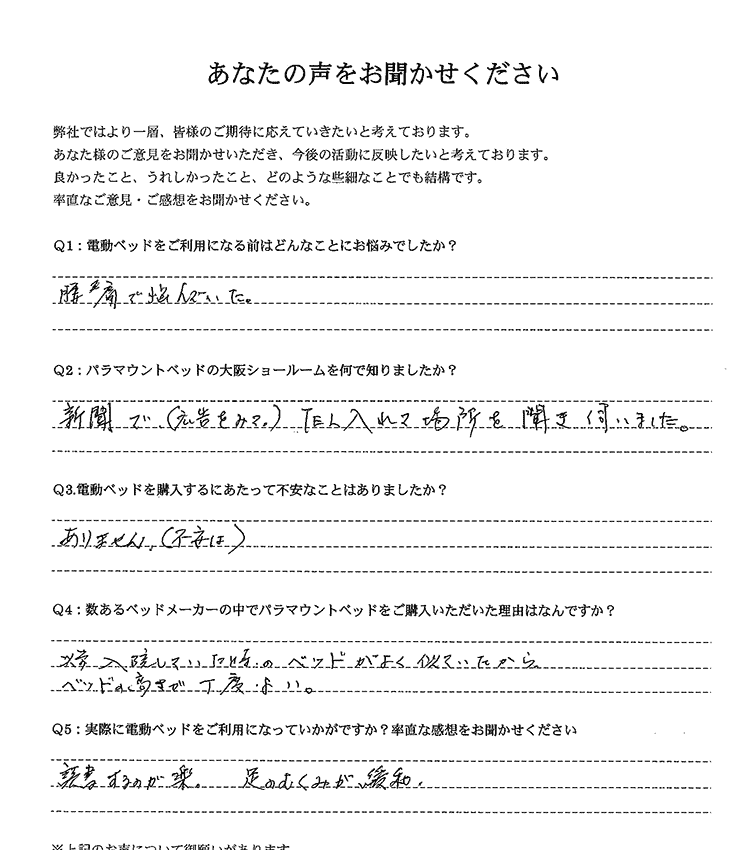 あなたの声をお聞かせください
弊社ではより一層、皆様のご期待に応えていきたいと考えております。
あなた様のご意見をお聞かせいただき、今後の活動に反映したいと考えております。
良かったこと、うれしかったこと、どのような些細なことでも結構です。
率直なご意見・ご感想をお聞かせください。
Q1：電動ベッドをご利用になる前はどんなことにお悩みでしたか？
腰痛で悩んでいた。
Q2：パラマウントベッドの大阪ショールームを何で知りましたか？
新聞で、(広告をみて。) TEL入れて場所を聞き伺いました。
Q3.電動ベッドを購入するにあたって不安なことはありましたか？
ありません、(不安は)
Q4：数あるベッドメーカーの中でパラマウントベッドをご購入いただいた理由はなんですか？
入院していた時のベッドがよく似ていたから
ベッドの高さが丁度よい。
Q5：実際に電動ベッドをご利用になっていかがですか？率直な感想をお聞かせください
読書するのが楽。 足のむくみが、緩和.
※上記のお声について御願いがあります